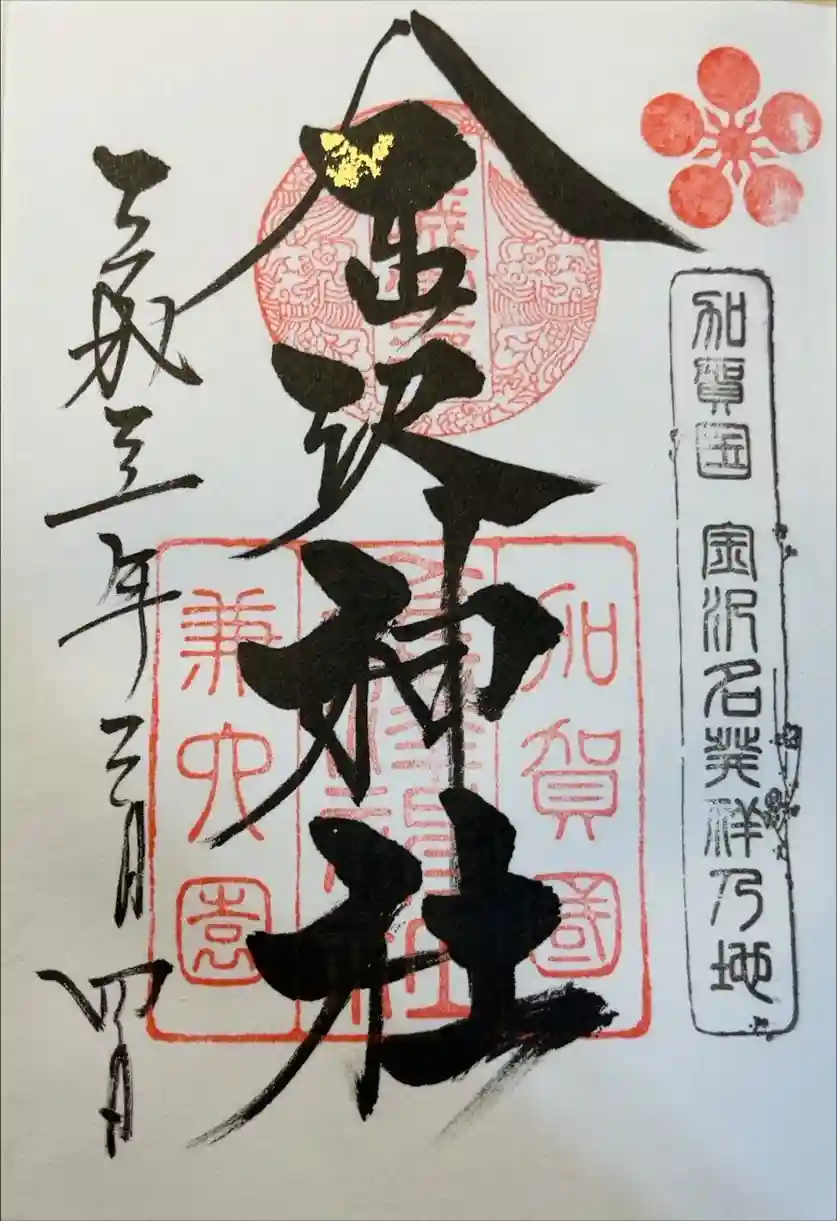 加賀国 金沢名発祥乃地
金沢神社
加賀國
金澤神社
兼六園
平成三一年三月四日